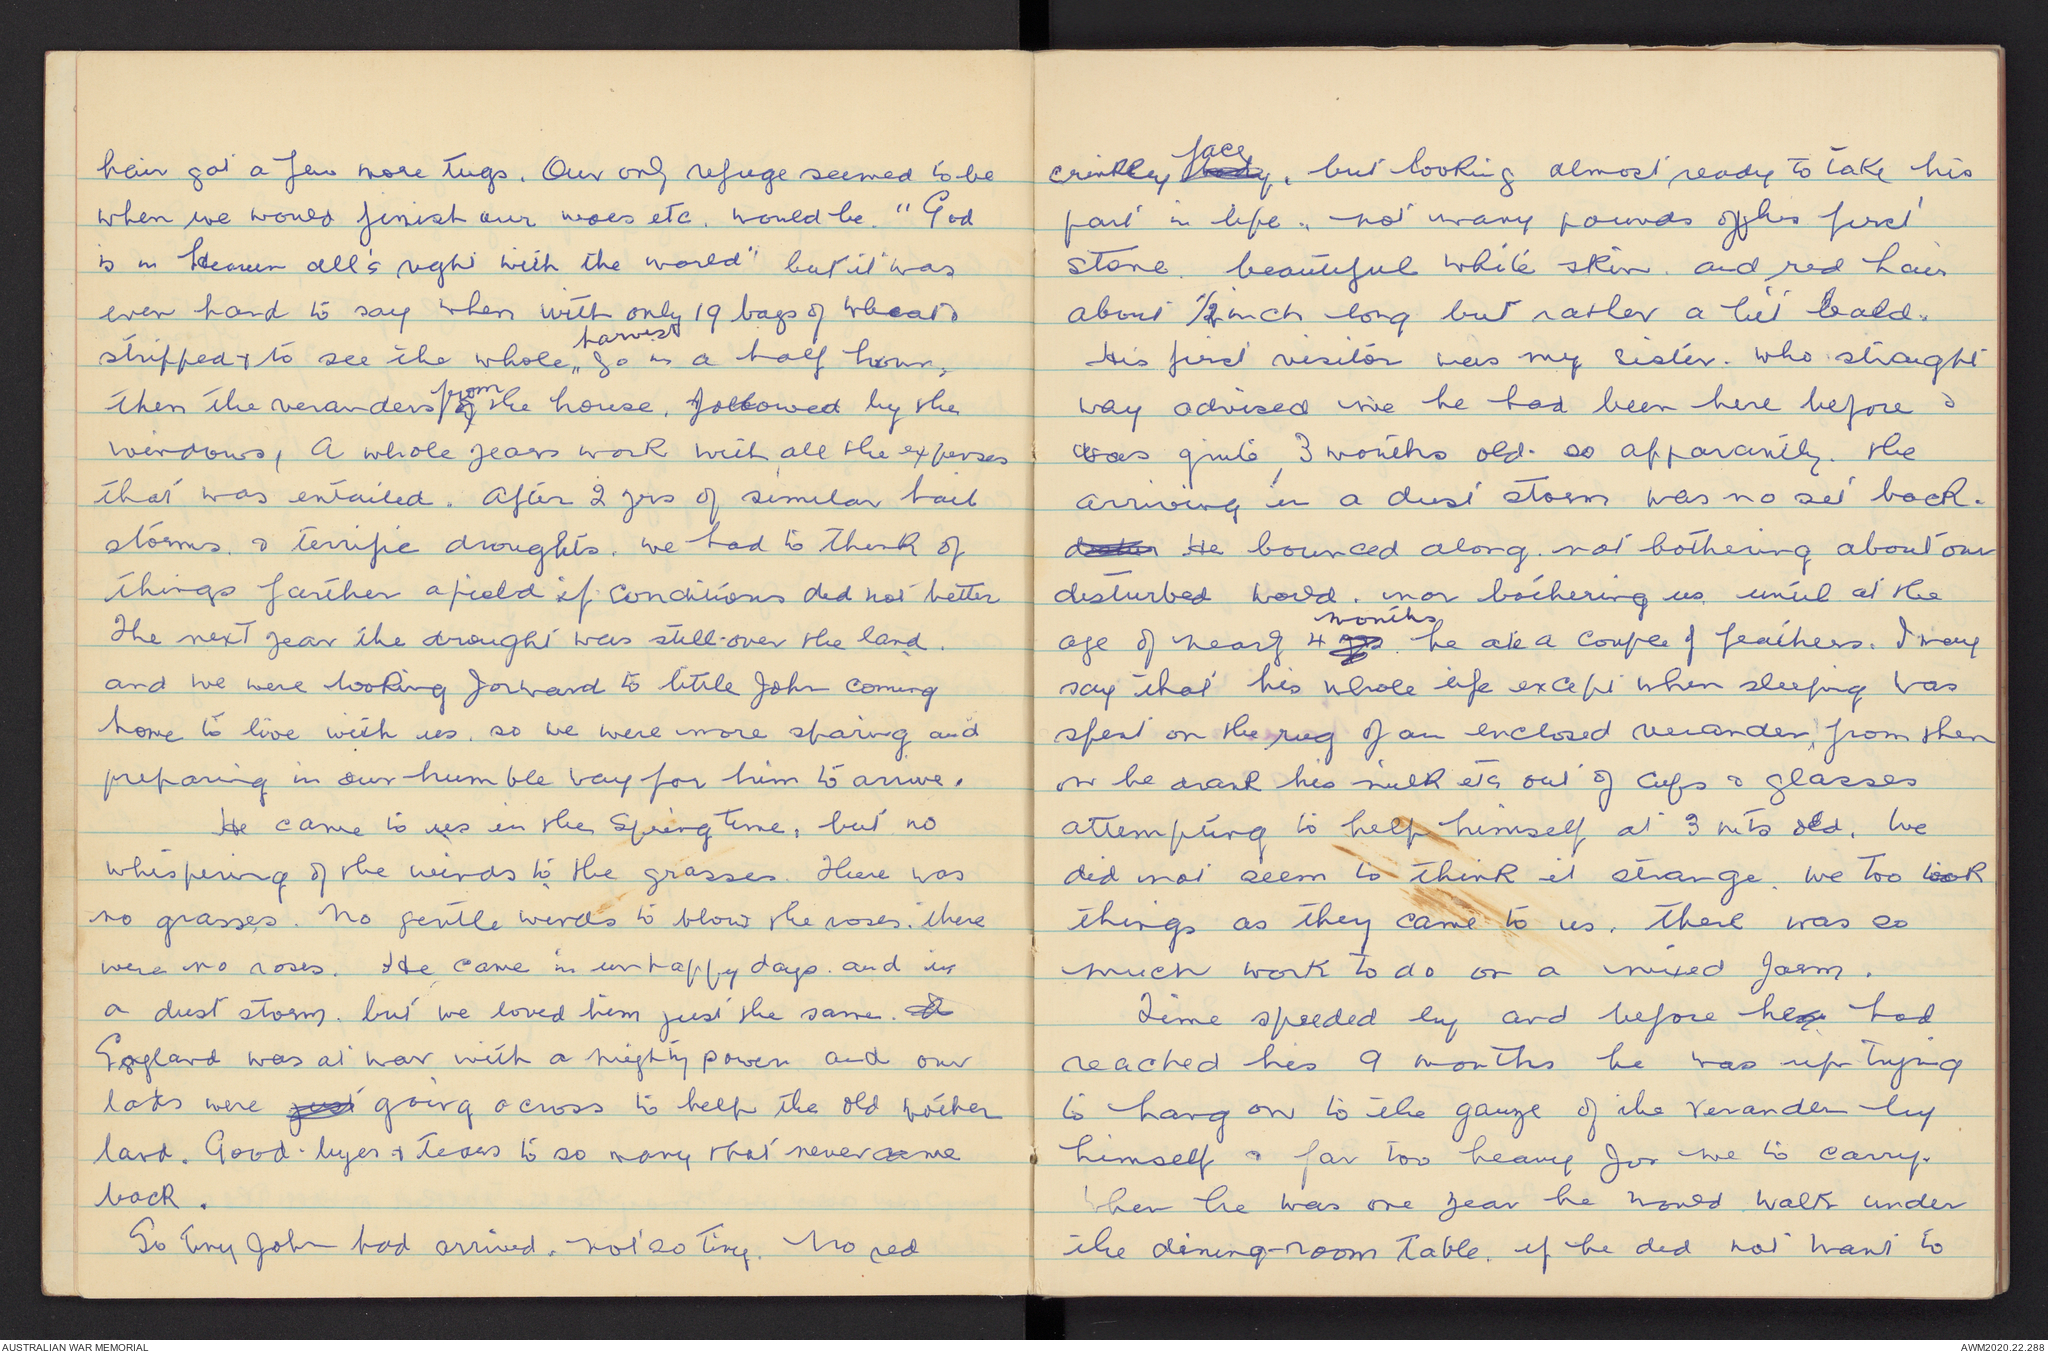 hair got a few more tugs. Our only refuge seemed to be
when we would finish our woes etc. would be. "God
is in Heaven all's right with the world" but it was
even hard to say when with only 19 bags of wheat
stripped & to see the whole harvest go in a half hour,
then the veranders from the house, followed by the
windows, A whole years work with all the expenses
that was entailed. After 2 yrs of similar hail
storms. & terrific droughts. we had to think of
things farther afield if conditions did not better
The next year the drought was still over the land.
and we were looking forward to little John coming
home to live with us. so we were more sparing and
preparing in our humble way for him to arrive.
He came to us in the Spring time, but no
whispering of the winds to the grasses. There was
no grasses. No gentle winds to blow the roses. there
were no roses. He came in unhappy days. and in
a dust storm. but we loved him just the same.
England was at war with a mighty power and our
lads were just going across to help the old mother
land. Good-byes & tears to so many that never came
back.
So tiny John had arrived. not so tiny. No red
crinkley face, but looking almost ready to take his
part in life. not many pounds off his first
stone. beautiful white skin. and red hair
about 1/2 inch long but rather a bit bald.
His first visitor was my sister. who straight
way advised me he had been here before &
was quite 3 months old. so apparantly. the
arriving in a dust storm was no set back.
He bounced along. not bothering about our
disturbed world. nor bothering us until at the
age of nearly 4 months he ate a couple of feathers. I may
say that his whole life except when sleeping was
spent on the rug of an enclosed verander, from then
on he drank his milk etc out of cups & glasses
attempting to help himself at 3 mts old. We
did not seem to think it strange. we too took
things as they came to us. there was so
much work to do on a mixed farm.
Time speeded by and before he had
reached his 9 months he was up trying
to hang on to the gauze of the verander by
himself & far too heavy for me to carry.
When he was one year he would walk under
the dining-room table. if he did not want to
AUSTRALIAN WAR MEMORIAL
AWM2020.22.288